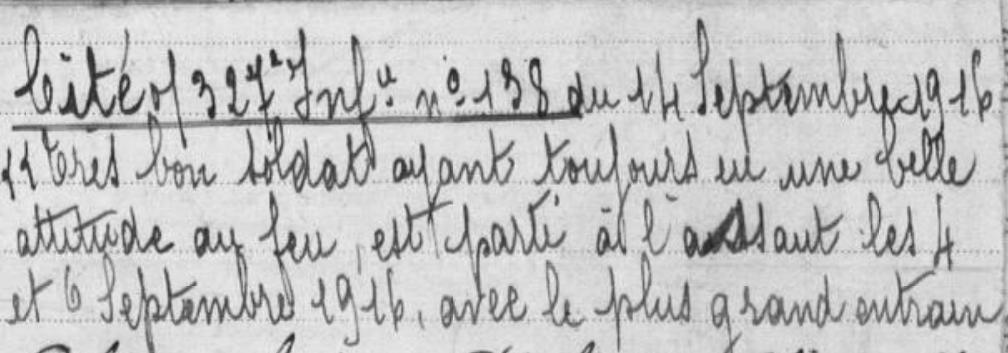 Cité o/ 327e Infie no 138 du 14 Septembre 1916
"Très bon soldat ayant toujours eu une belle
attitude au feu, est parti à l'assaut les 4
et 6 Septembre 1916, avec le plus grand entrain